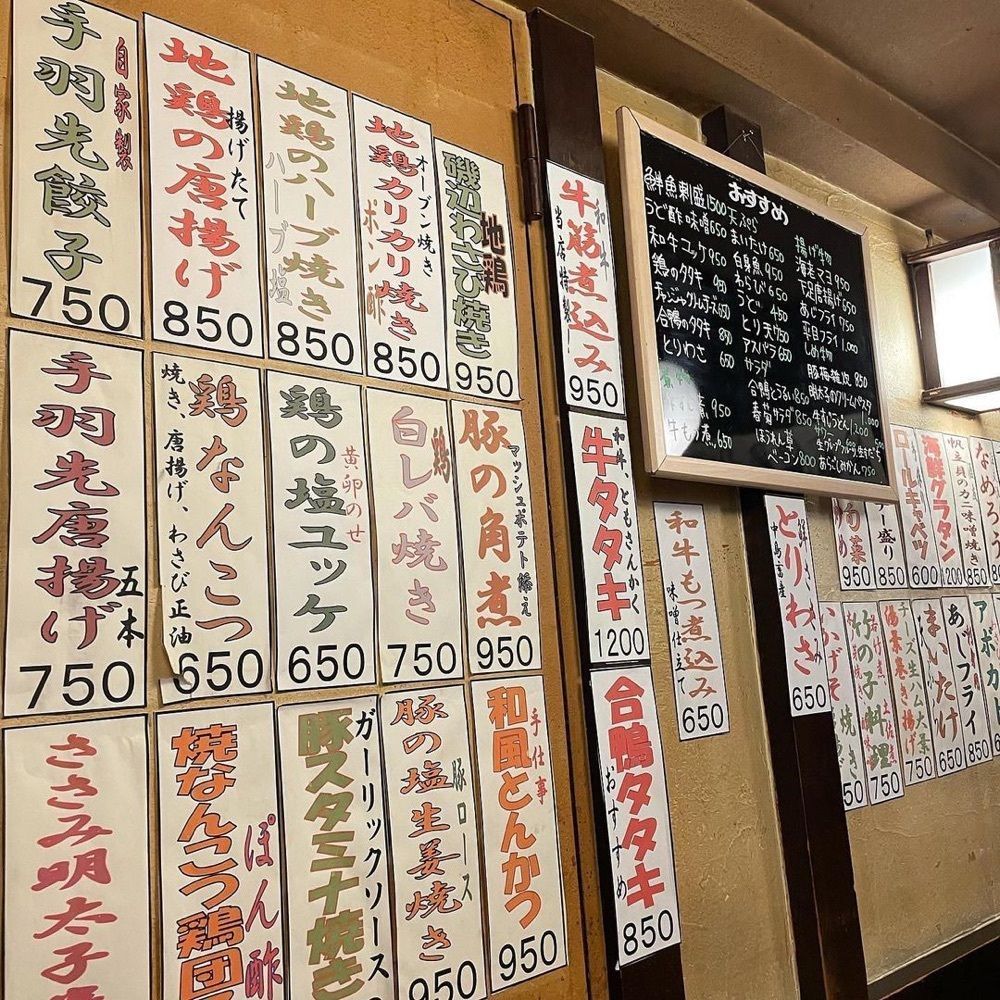 手羽先餃子
自家製
750
地鶏の唐揚げ
揚げたて
850
地鶏のハーブ焼き
ハーブ塩
850
地鶏カリカリ焼き
オーブン焼き
ポン酢
850
磯辺わさび焼き
地鶏
950
手羽先唐揚げ
五本
750
鶏なんこつ
焼き、唐揚げ、わさび正油
650
鶏の塩ユッケ
黄卵のせ
650
白レバ焼き
鶏
750
豚の角煮
マッシュポテト添え
950
ささみ明太子
焼なんこつ鶏団
ぽん酢
豚スタミナ焼き
ガーリックソース
豚の塩生姜焼き
豚ロース
950
和風とんかつ
手仕事
950
牛筋煮込み
和牛
当店特製
950
牛タタキ
和牛、ともさんかく
1200
合鴨タタキ
おすすめ
850
おすすめ
鮮魚刺盛1500
うど酢味噌650
和牛ユッケ950
鶏のタタキ
合鴨のタタキ
とりわさ 650
煮 950
牛もつ煮 650
天ぷら
まいたけ 650
白身魚 950
わらび 650
うど
とり天 750
アスパラ 650
サラダ
合鴨とうるい 850
春菊サラダ 850
ほうれん草
ベーコン 800
揚げ物
海老マヨ 950
下足唐揚げ 650
あじフライ 750
平目フライ 1,000
しめ物
豚梅雑炊 850
明太子のクリームパスタ
1,000
牛すじうどん 1,200
あらごしみかん 750
和牛もつ煮込み
味噌仕立て
650
とりわさ
中島畜産
650
950
盛り
850
ロールキャベツ
600
海鮮グラタン
1200
帆立貝のカニ味噌焼き
850
なめろう
焼き
850
竹の子料理
750
湯葉巻き揚げ
750
まいたけ
650
あじフライ
850
アボカ